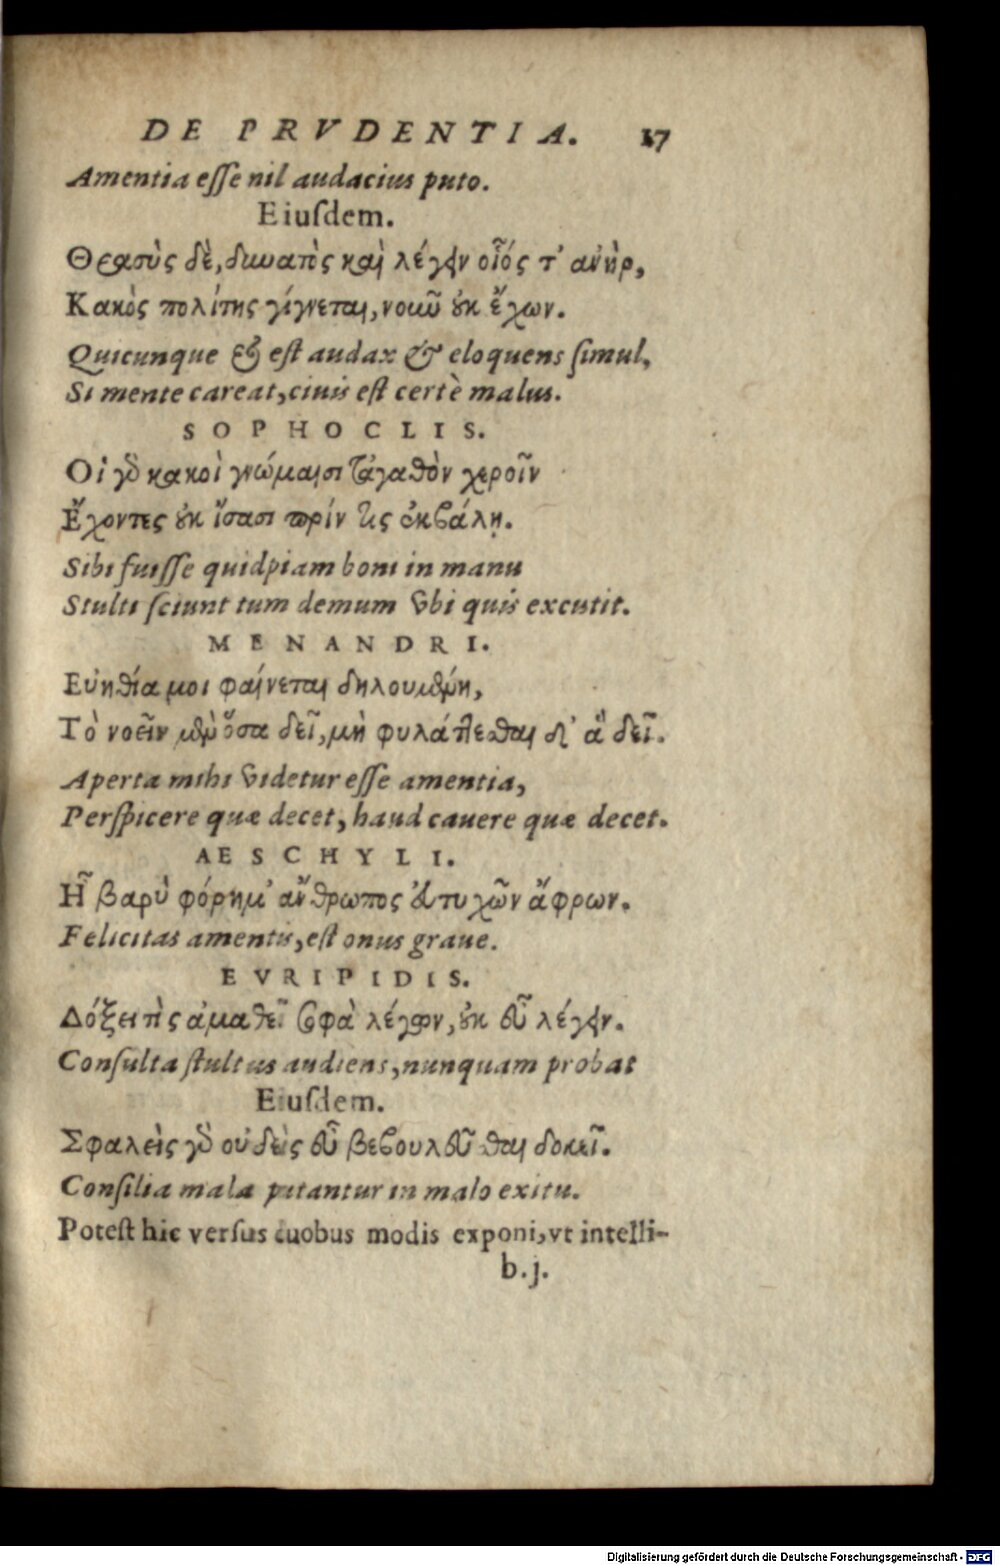 DE PRVDENTIA. 17
Amentia eſſe nil audacius puto.
Eiuſdem.
Θρασὺς δὲ, δυνατὸς καὶ λέγειν οἷός τ' ἀνὴρ,
Κακὸς πολίτης γίγνεται, νοῦν οὐκ ἔχων.
Quicunque & eſt audax & eloquens ſimul,
Si mente careat, ciuis eſt certè malus.
SOPHOCLIS.
Οἱ γὸ κακοὶ γνώμαισι τἀγαθὸν χεροῖν
Ἔχοντες οὐκ ἴσασι πρίν τις ἐκβάλῃ.
Sibi fuiſſe quidpiam boni in manu
Stulti ſciunt tum demum vbi quis excutit.
MENANDRI.
Εὐηθία μοι φαίνεται δηλουμένη,
Τὸ νοεῖν μὲν ὅσα δεῖ, μὴ φυλάττεσθαι δ' ἃ δεῖ.
Aperta mihi videtur eſſe amentia,
Perſpicere quæ decet, haud cauere quæ decet.
AESCHYLI.
Ἦ βαρὺ φόρημ' ἄνθρωπος εὐτυχῶν ἄφρων.
Felicitas amentis, eſt onus graue.
EVRIPIDIS.
Δόξει τὶς ἀμαθεῖ σοφὰ λέγων, οὐκ εὖ λέγειν.
Conſulta ſtultus audiens, nunquam probat
Eiuſdem.
Σφαλεὶς γὸ οὐδεὶς εὖ βεβουλεῦσθαι δοκεῖ.
Conſilia mala putantur in malo exitu.
Poteſt hic verſus duobus modis exponi, vt intelli-
b.j.
Digitalisierung gefördert durch die Deutsche Forschungsgemeinschaft - DFG